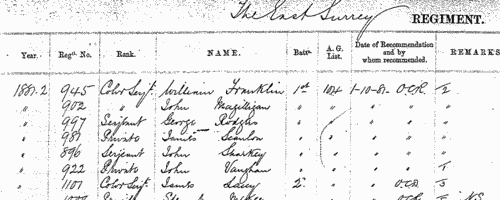 The East Surrey REGIMENT.
Year. Regtl. No. Rank. NAME. Battn. A. G. List. Date of Recommendation and by whom recommended. REMARKS
1881-2 945 Color Serjt. William Franklin 1st 104 1-10-81- O.C.R.
" 902 " John Magilligan " " " "
" 997 Serjeant George Rodgers " " " "
" 987 Private James Scanlon " " " "
" 896 Serjeant John Sharkey " " " "
" 922 Private John Vaughan " " " "
" 1101 Color Serjt. James Lacey 2. " " O.C.R.